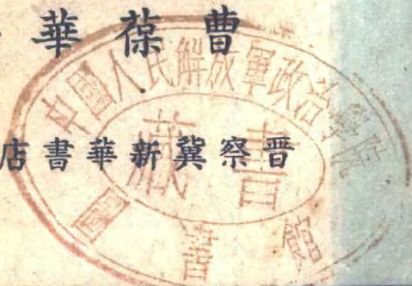 曹葆華
晋察冀新華書店
中國人民解放軍政治學院
藏書
圖書館